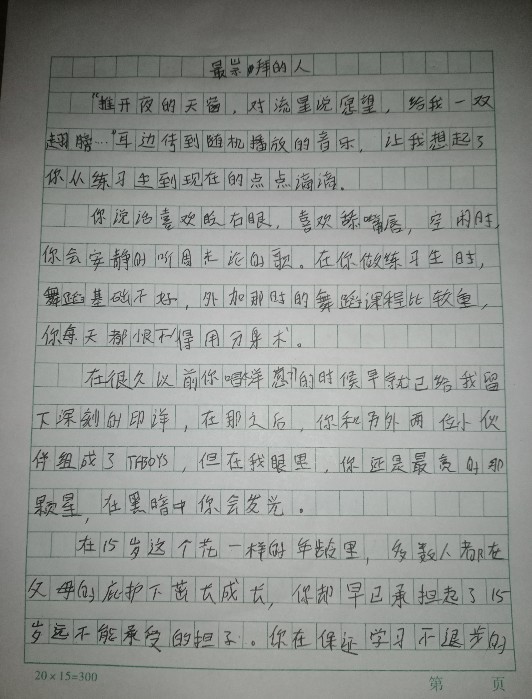 最崇拜的人
“推开夜的天窗，对流星说愿望，给我一双
翅膀…”耳边传到随机播放的音乐，让我想起了
你从练习生到现在的点点滴滴。
你说话喜欢眨右眼，喜欢舔嘴唇，空闲时，
你会安静的听周杰伦的歌。在你做练习生时，
舞蹈基础不好，外加那时的舞蹈课程比较重，
你每天都恨不得用分身术。
在很久以前你唱《洋葱》的时候早就已给我留
下深刻的印洋，在那之后，你和另外两位小伙
伴组成了TFBOYS，但在我眼里，你还是最亮的那
颗星，在黑暗中你会发光。
在15岁这个花一样的年龄里，多数人都在
父母的庇护下茁长成长，你却早已承担起了15
岁远不能承受的担子。你在保证学习不退步的
20×15=300
第 页